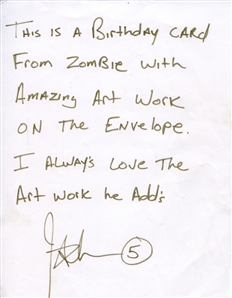 This is a Birthday Card
From Zombie with
Amazing Art Work
on the Envelope.
I Alway's Love The
Art work he Add's
5